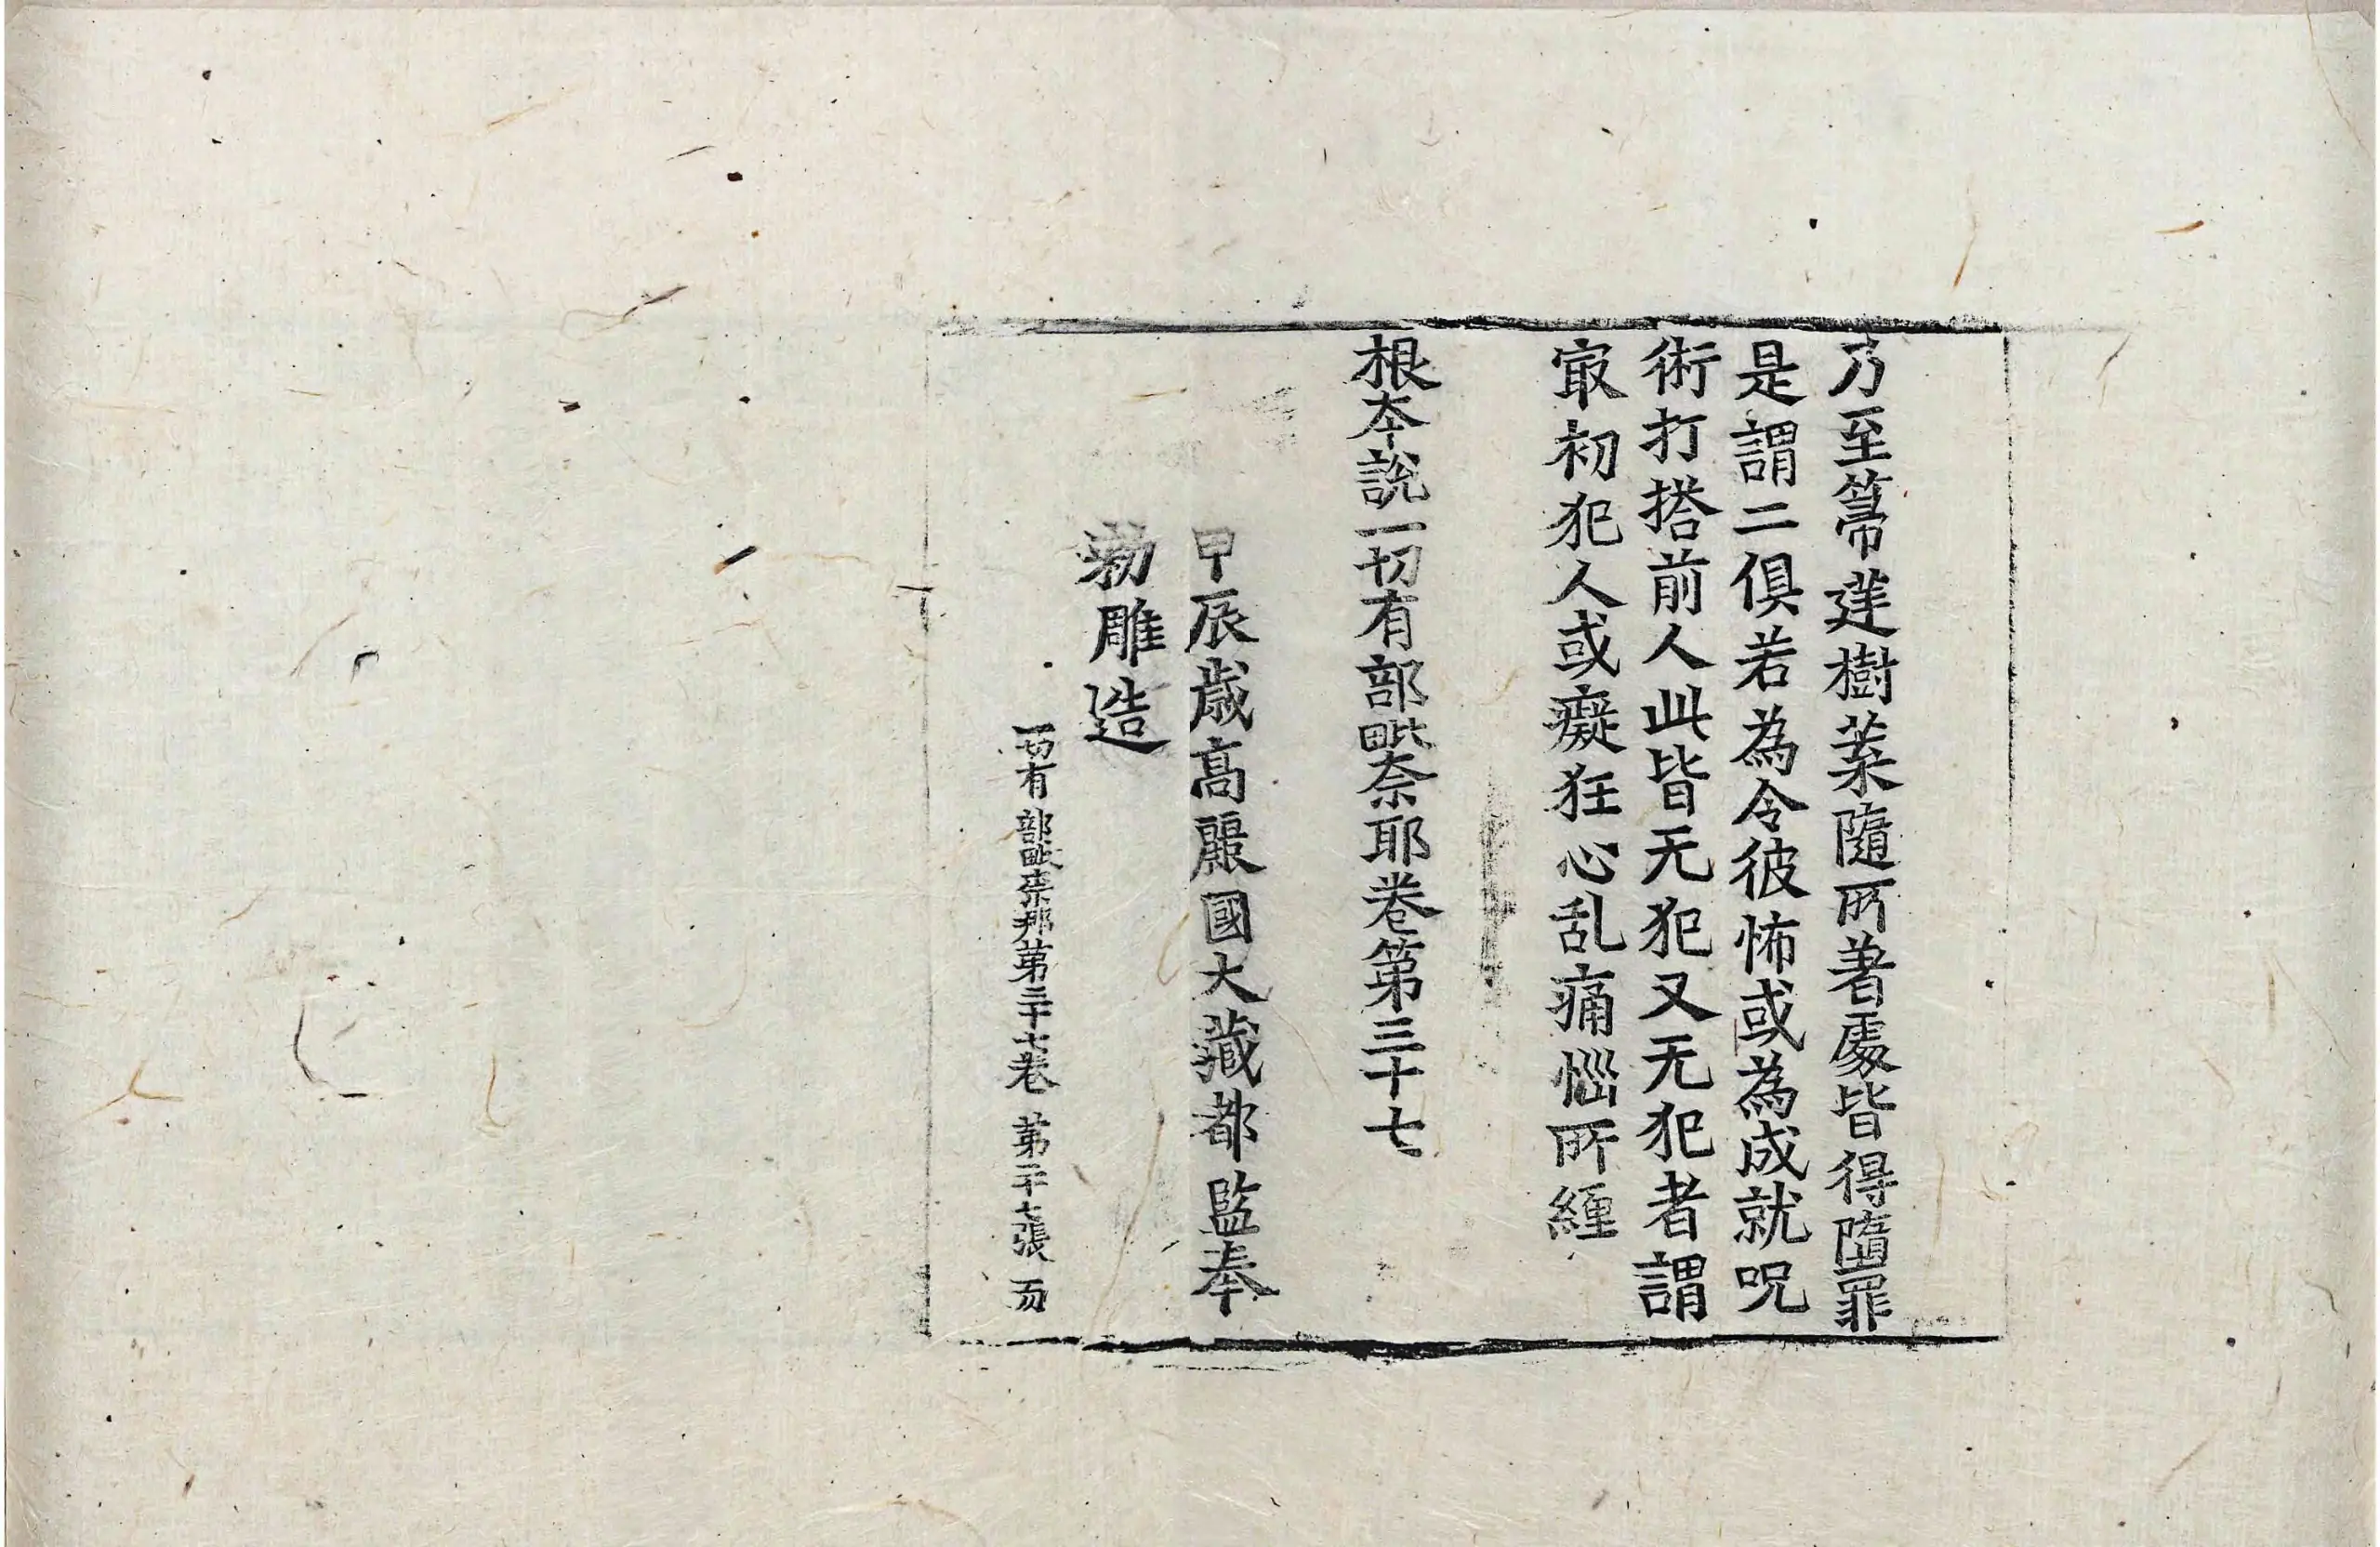 乃至箒莛樹葉隨所著處皆得墮罪
是謂二俱若為令彼怖或為成就呪
術打搭前人此皆无犯又无犯者謂
冣初犯人或癡狂心乱痛惱所纏
根本說一切有部毗奈耶卷第三十七
甲辰歲高麗國大藏都監奉
勅雕造
一切有部毗柰耶第三十七卷 第二十七張